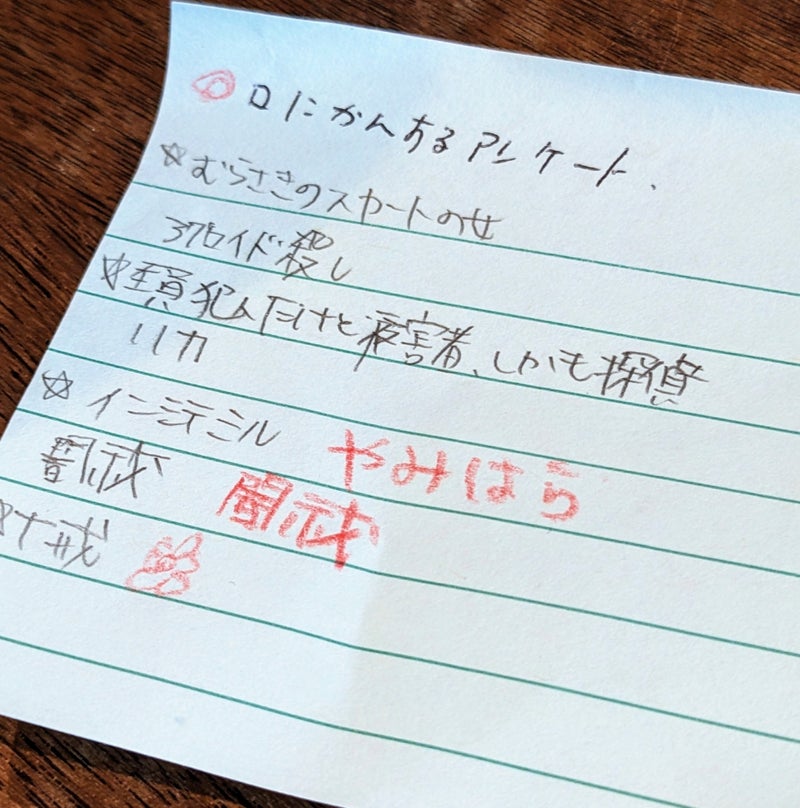 口にかんするアンケート.
☆むらさきのスカートの女
アルロイド殺し
☆真犯人だけど被害者、しかも探偵
リカ
☆インシテミル やみはら
闇祓
☆十戒